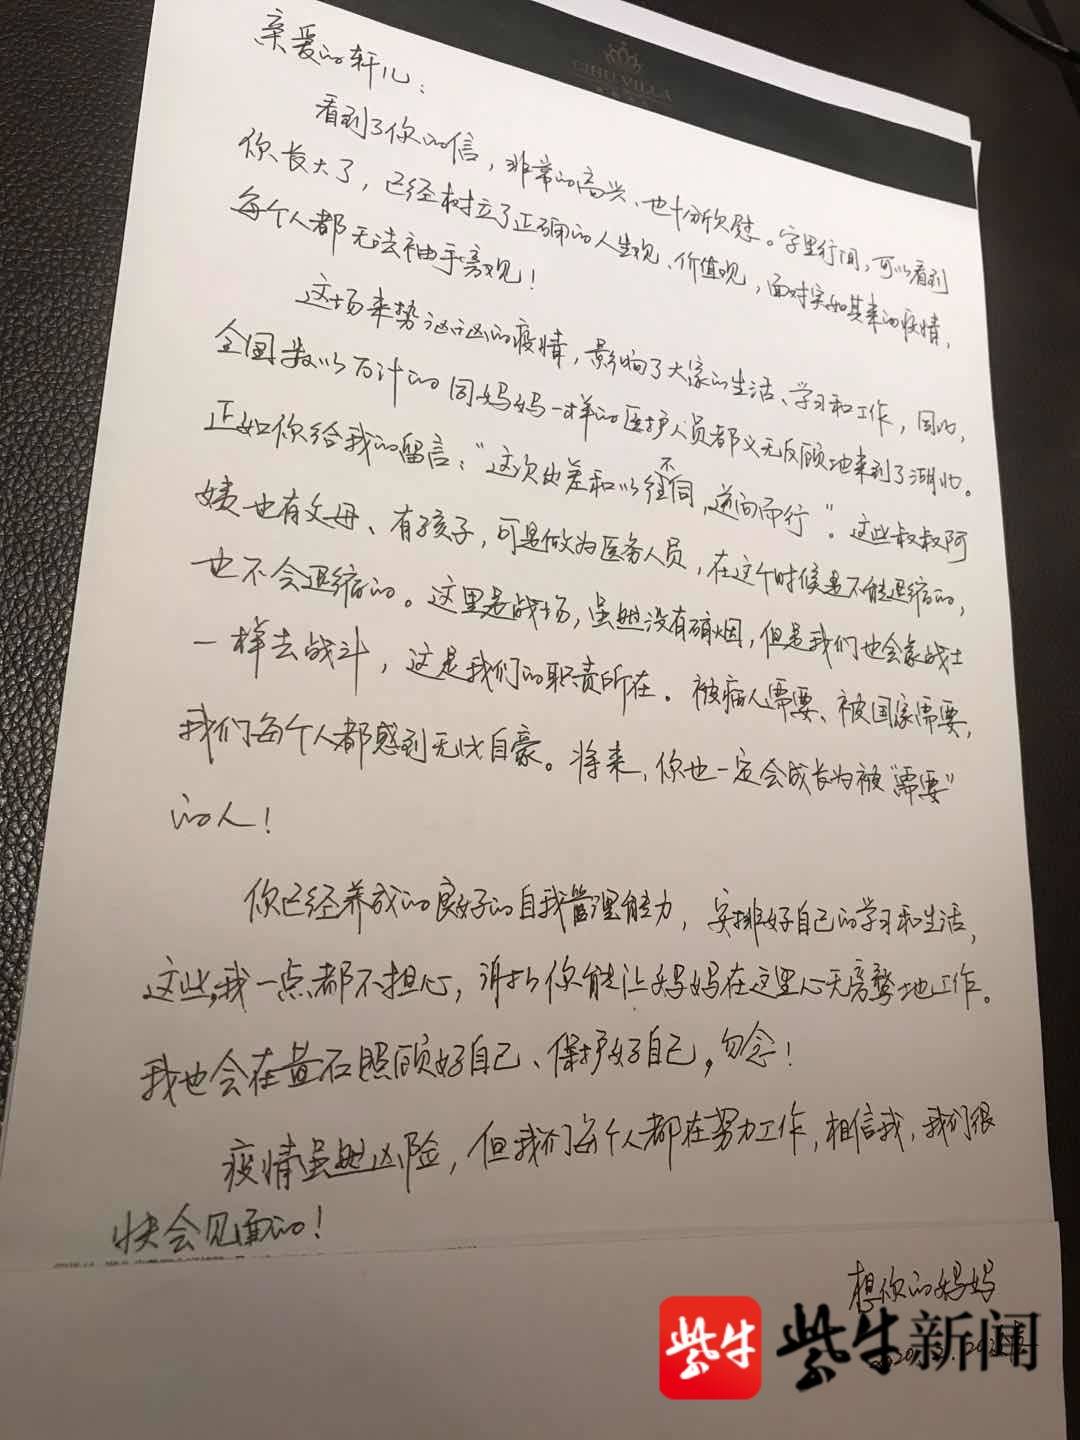 CIHU VILLA
亲爱的轩儿：
看到了你的信，非常的高兴、也十分欣慰。字里行间，可以看到
你长大了，已经树立了正确的人生观、价值观，面对突如其来的疫情，
每个人都无法袖手旁观！
这场来势汹汹的疫情，影响了大家的生活、学习和工作，因此，
全国数以万计的同妈妈一样的医护人员都义无反顾地来到了湖北。
正如你给我的留言：“这次出差和以往不同，逆向而行”。这些叔叔阿
姨也有父母、有孩子，可是做为医务人员，在这个时候是不能退缩的，
也不会退缩的。这里是战场，虽然没有硝烟，但是我们也会象战士
一样去战斗，这是我们的职责所在。被病人需要、被国家需要，
我们每个人都感到无比自豪。将来，你也一定会成长为被“需要”
的人！
你已经养成的良好的自我管理能力，安排好自己的学习和生活，
这些，我一点都不担心，谢谢你能让妈妈在这里心无旁骛地工作。
我也会在黄石照顾好自己、保护好自己。勿念！
疫情虽然凶险，但我们每个人都在努力工作，相信我，我们很
快会见面的！
想你的妈妈
紫牛 紫牛新闻